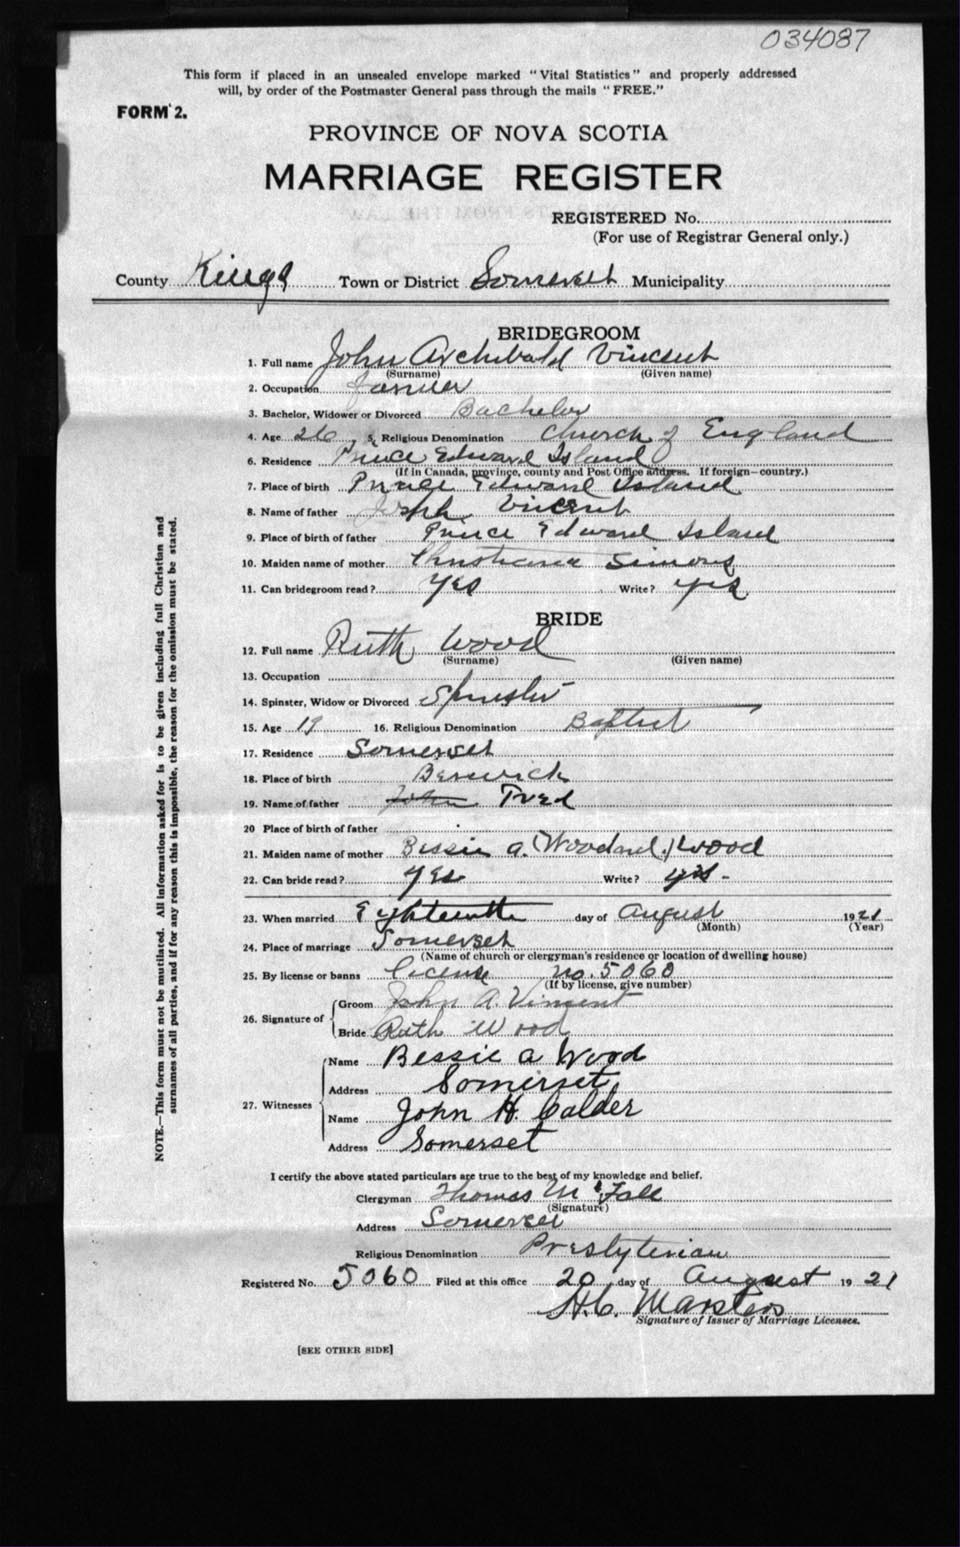 034087
This form if placed in an unsealed envelope marked "Vital Statistics" and properly addressed
will, by order of the Postmaster General pass through the mails "FREE."
FORM 2.
PROVINCE OF NOVA SCOTIA
MARRIAGE REGISTER
REGISTERED No.
(For use of Registrar General only.)
County Kings Town or District Somerset Municipality
BRIDEGROOM
1. Full name John Archibald Vincent
(Surname) (Given name)
2. Occupation Farmer
3. Bachelor, Widower or Divorced Bachelor
4. Age 26 5. Religious Denomination Church of England
6. Residence Prince Edward Island
(If in Canada, province, county and Post Office address. If foreign—country.)
7. Place of birth Prince Edward Island
8. Name of father Joseph Vincent
9. Place of birth of father Prince Edward Island
10. Maiden name of mother Christiana Simons
11. Can bridegroom read? Yes Write? Yes
BRIDE
12. Full name Ruth Wood
(Surname) (Given name)
13. Occupation
14. Spinster, Widow or Divorced Spinster
15. Age 19 16. Religious Denomination Baptist
17. Residence Somerset
18. Place of birth Berwick
19. Name of father John Fred
20 Place of birth of father
21. Maiden name of mother Bessie A. (Woodard) Wood
22. Can bride read? Yes Write? yes -
23. When married Eighteenth day of August 1921
(Month) (Year)
24. Place of marriage Somerset
(Name of church or clergyman's residence or location of dwelling house)
25. By license or banns License no. 5060
(If by license, give number)
26. Signature of Groom John A. Vincent
Bride Ruth Wood
27. Witnesses Name Bessie A Wood
Address Somerset
Name John H. Calder
Address Somerset
I certify the above stated particulars are true to the best of my knowledge and belief.
Clergyman Thomas McFall
(Signature)
Address Somerset
Religious Denomination Presbyterian
Registered No. 5060 Filed at this office 20 day of August 1921
H.C. Marsters
Signature of Issuer of Marriage Licenses.
[SEE OTHER SIDE]
NOTE.—This form must not be mutilated. All information asked for is to be given including full Christian and
surnames of all parties, and if for any reason this is impossible, the reason for the omission must be stated.